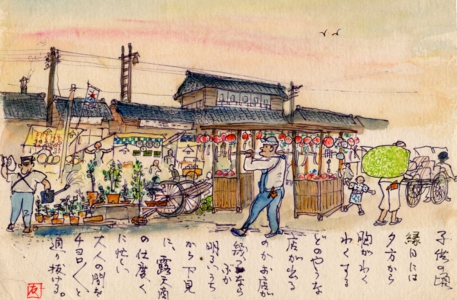 子供の頃
縁日には
夕方から
胸がわく
わくする
どのやうな
店が出る
のかお店が
なら
明るいうち
から下見
に、露天商
の仕度
に忙しい
大人の間を
チョロ〱と
通り抜ける。